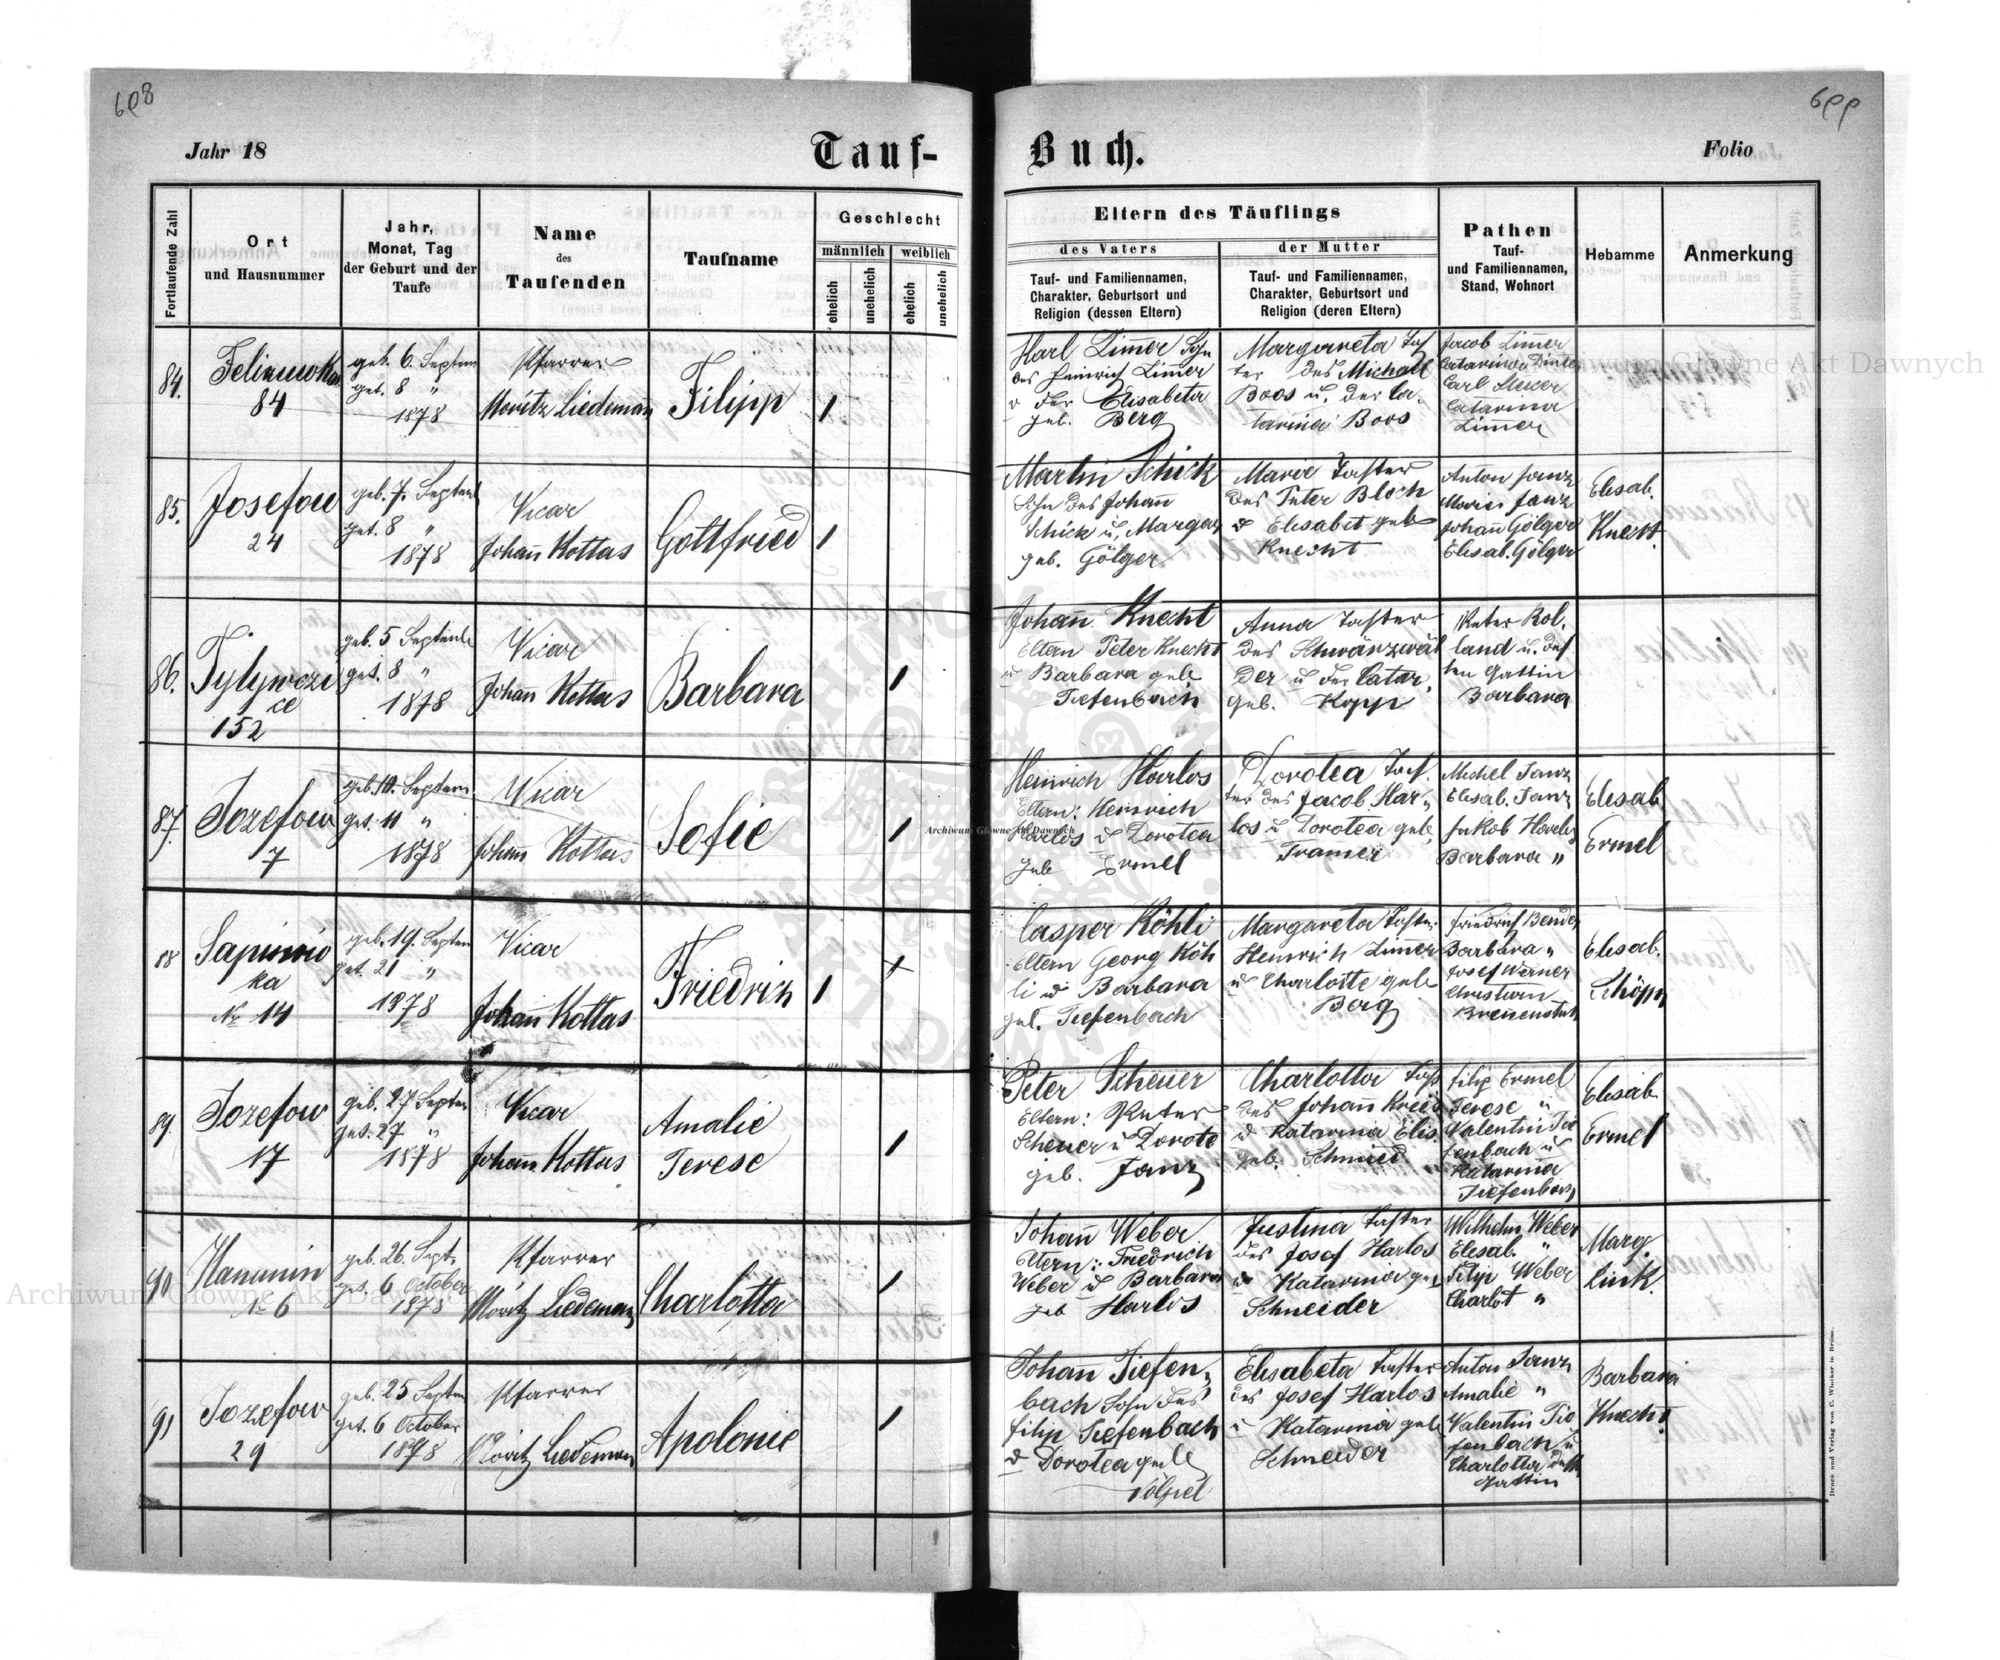 698
699
Jahr 18
Tauf-
Buch.
Folio
Fortlaufende Zahl
Ort
und Hausnummer
Jahr,
Monat, Tag
der Geburt und der
Taufe
Name
des
Taufenden
Taufname
Geschlecht
männlich
weiblich
ehelich
unehelich
ehelich
unehelich
Eltern des Täuflings
des Vaters
Tauf- und Familiennamen,
Charakter, Geburtsort und
Religion (dessen Eltern)
der Mutter
Tauf- und Familiennamen,
Charakter, Geburtsort und
Religion (deren Eltern)
Pathen
Tauf-
und Familiennamen,
Stand, Wohnort
Hebamme
Anmerkung
84.
84
geb. 6. Septem
get. 8 "
1878
Pfarrer
Moritz Liedemañ
Filipp
1
Karl Lim̃er Sohn
des Heinrich Lim̃er
u der Elisabeta
geb. Berg
Margareta Toch
ter des Michael
Boos u. der Ca-
tarina Boos
Jacob Lim̃er
Catarina
Carl
Catarina
Lim̃er
85.
Josefow
24
geb. 7. Septem
get. 8 "
1878
Vicar
Johañ Kottas
Gottfried
1
Martin Schick
Sohn des Johañ
Schick u. Margar
geb. Gölger
Marie Tochter
des Peter Bloch
u Elisabet geb
Knecht
Anton Janz
Marie Janz
Johañ Gölger
Elisab. Gölger
Elisab.
Knecht
86.
Tylywczi
ce
152
geb. 5 Septemb
get. 8 "
1878
Vicar
Johañ Kottas
Barbara
1
Johañ Knecht
Eltern Peter Knecht
u Barbara geb
Tiefenbach
Anna Tochter
des Schwärzwäl
der u der Catar.
geb. Kopp
Peter Rol,
land u. des
sen Gattin
Barbara
87.
Jozefow
7
geb. 10. Septem.
get. 11 "
1878
Vicar
Johañ Kottas
Sofie
1
Heinrich Harlos
Eltern: Heinrich
Harlos u Dorotea
geb Ermel
Dorotea Toch.
ter des Jacob Har-
los u Dorotea geb.
Tramer
Michel Janz
Elisab. Janz
Jakob Harlos
Barbara "
Elisab
Ermel
88
Sapieżin
ka
№ 14
geb. 19. Septem
get. 21 "
1878
Vicar
Johañ Kottas
Friedrich
1
Casper Köhli
Eltern Georg Köh
li u Barbara
geb. Tiefenbach
Margareta Tochter
Heinrich Lim̃er
u Charlotte geb
Berg
Friedrich Bender
Barbara "
Josef Werner
Christian
Elisab.
Schöpp
89.
Jozefow
17
geb. 27 Septem
get. 27 "
1878
Vicar
Johañ Kottas
Amalie
Terese
1
Peter Scheuer
Eltern: Peter
Scheuer u Dorote
geb. Janz
Charlotta Toch
des Johañ Kreis
u Katarina Elis.
geb. Schmied
Filip Ermel
Terese "
Valentin Tie
fenbach u
Katarina
Tiefenbach
Elisab
Ermel
90
Hanunin
№ 6
geb. 26. Sept.
get. 6 October
1878
Pfarrer
Moritz Liedeman
Charlotta
1
Johañ Weber
Eltern: Friedrich
Weber u Barbara
geb Harlos
Justina Tochter
des Josef Harlos
u Katarina geb
Schneider
Wilhelm Weber
Elisab. "
Filip Weber
Charlot "
Marg.
Link.
91
Jozefow
29
geb. 25 Septem
get. 6 October
1878
Pfarrer
Moritz Liedeman
Apolonie
1
Johañ Tiefen,
bach Sohn des
Filip Tiefenbach
u Dorotea geb
Elisabeta Tochter
des Josef Harlos
u Katarina geb
Schneider
Anton Janz
Amalie "
Valentin Tie
fenbach u
Charlotta dess
Gattin
Barbara
Knecht
Druck und Verlag von C. Winiker in Brünn.
Archiwum Główne Akt Dawnych
Archiwum Główne Akt Dawnych
Archiwum Główne Akt Dawnych